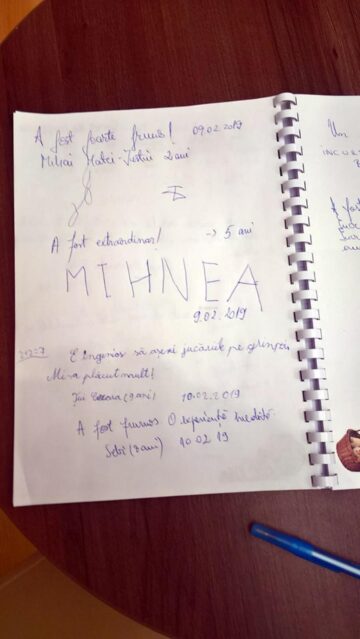 A fost foarte frumos! 09.02.2019
Mihai Matei-Iustin 2 ani
A fost extraordinar! → 5 ani
MIHNEA
9.02.2019
E ingenios să așezi jucăriile pe
Mi-a plăcut mult!
(9 ani) 10.02.2019
A fost frumos O experiență inedită
Sebi (8 ani) 10 02 19
Um
INCUR
A fost